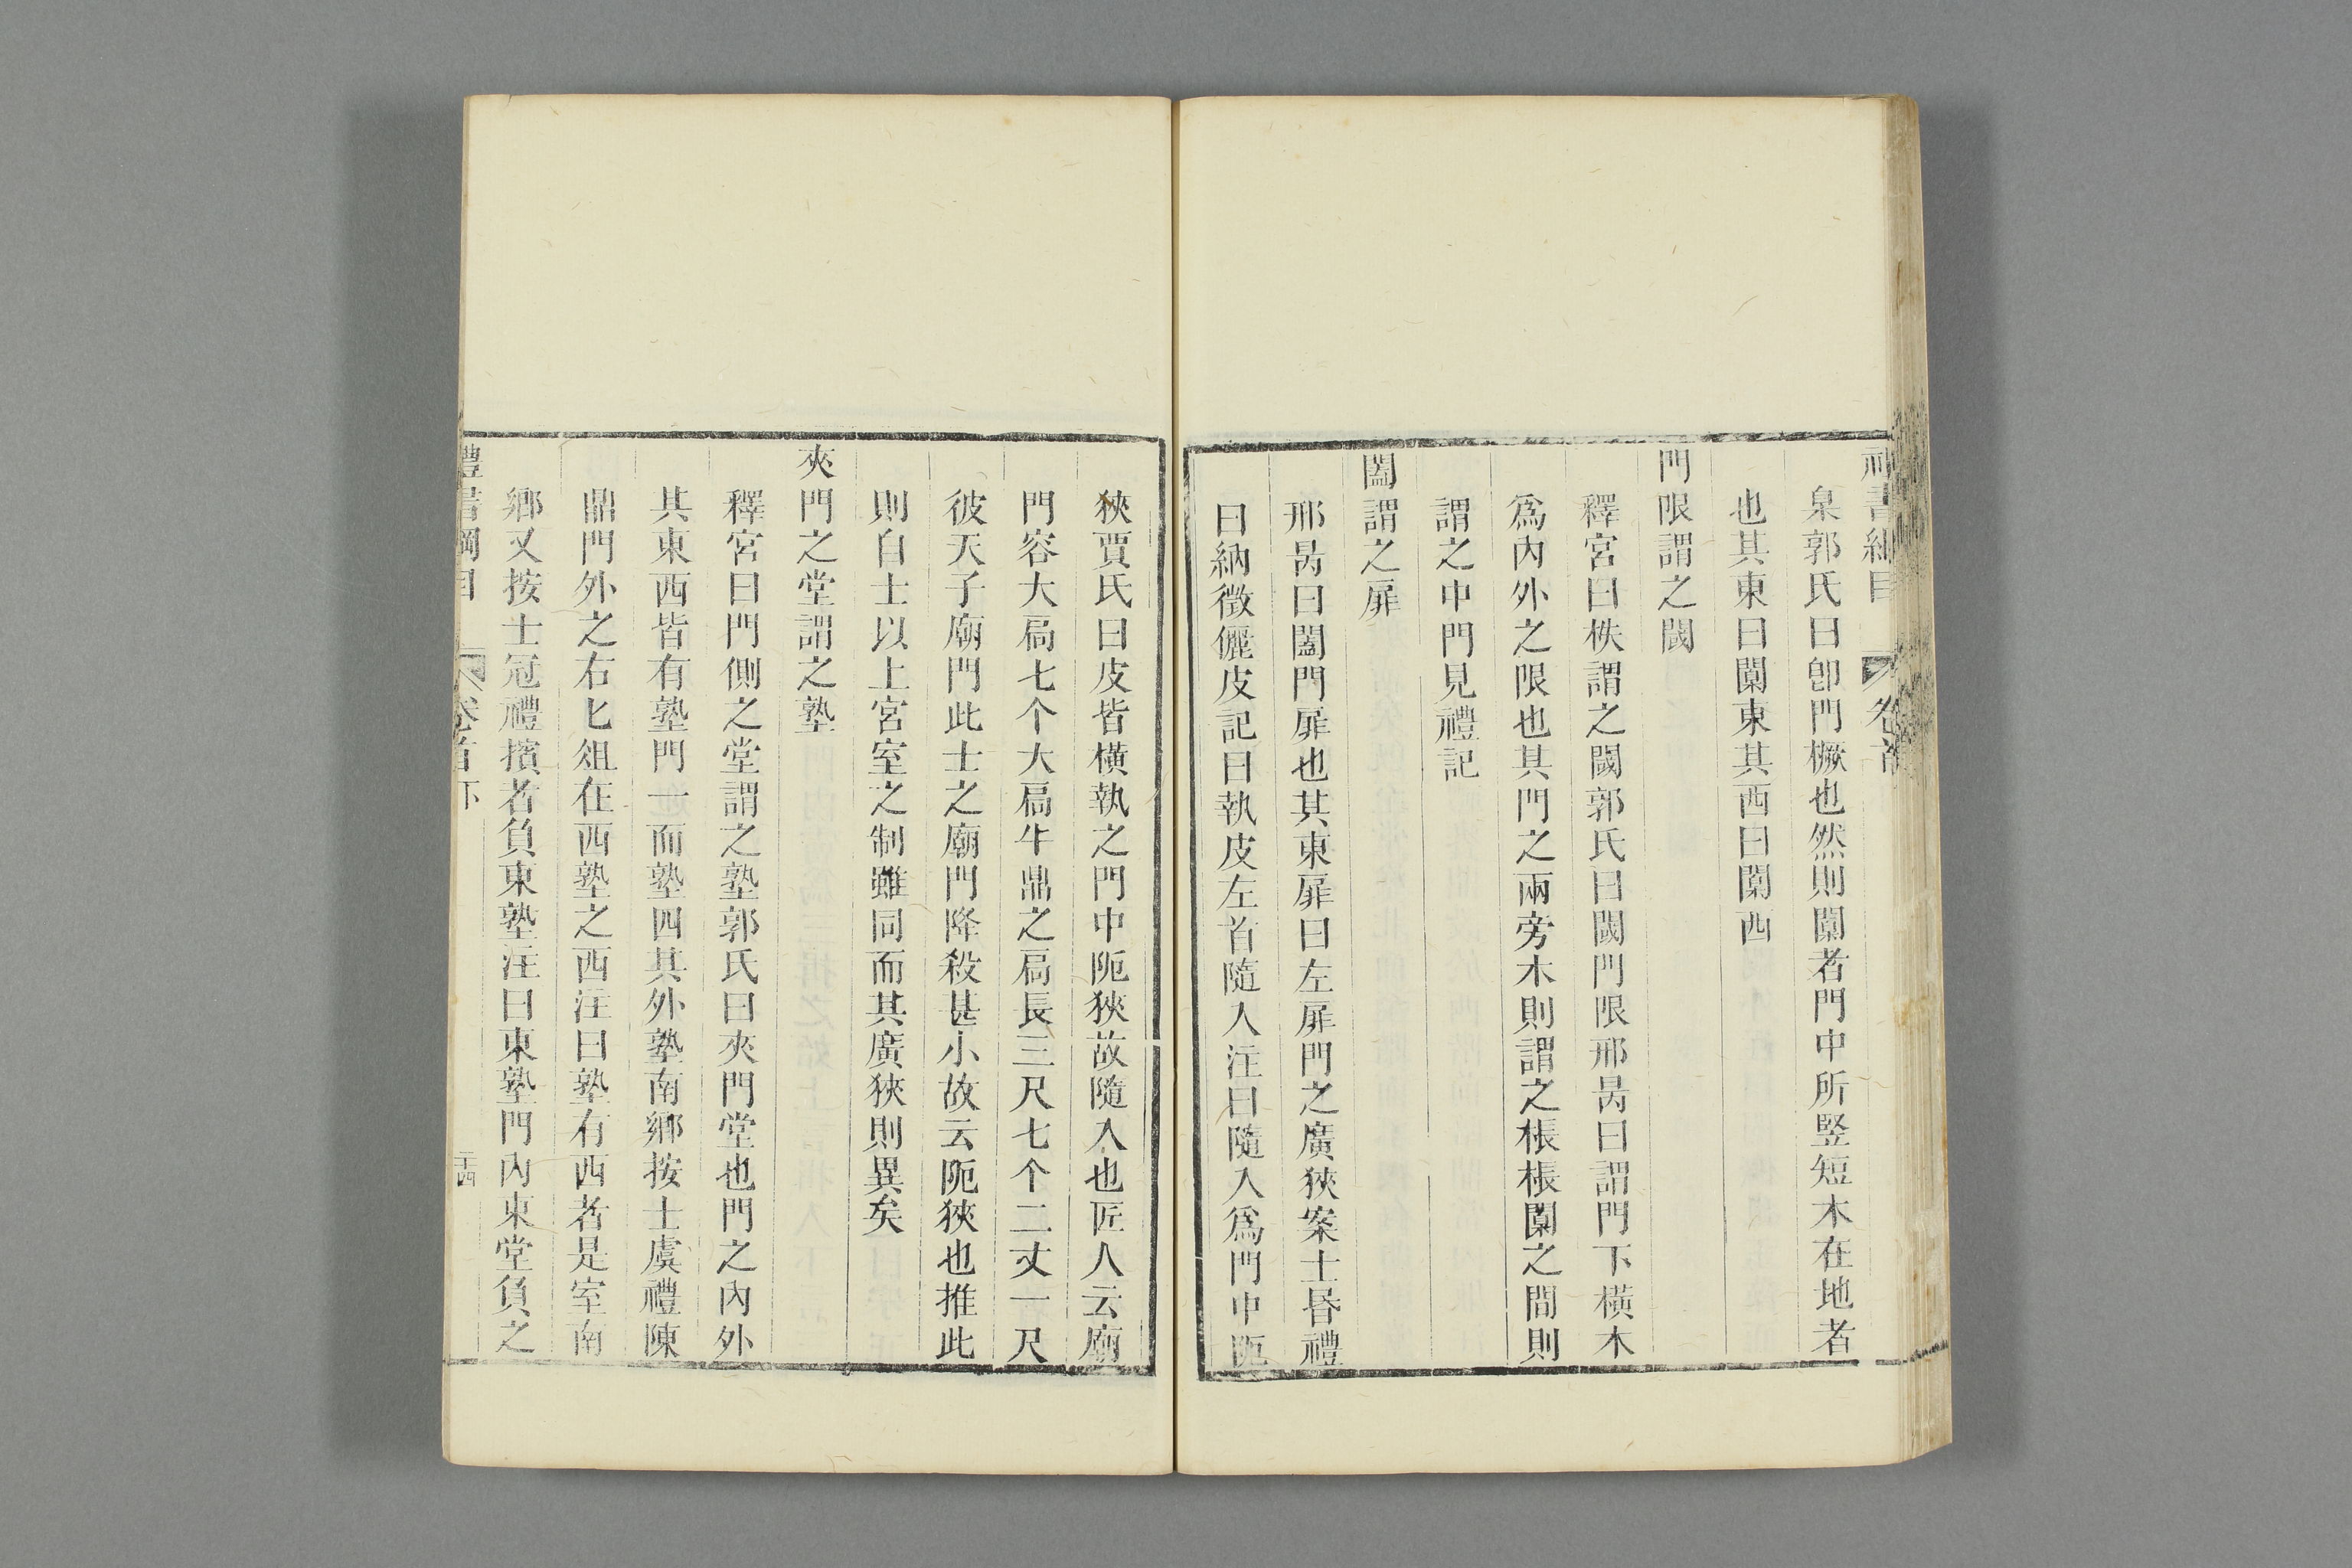 臬郭氏曰卽門橛也然則闑者門中所竪短木在地者
也其東曰闑東其西曰闑西
門限謂之閾
釋宮曰柣謂之閾郭氏曰閾門限邢昺曰謂門下橫木
爲內外之限也其門之兩旁木則謂之棖棖闑之間則
謂之中門見禮記
闔謂之扉
邢昺曰闔門扉也其東扉曰左扉門之廣狹案士昏禮
曰納徵儷皮記曰執皮左首隨入注曰隨入爲門中阨
狹賈氏曰皮皆橫執之門中阨狹故隨入也匠人云廟
門容大扃七个大扃牛鼎之扃長三尺七个二丈一尺
彼天子廟門此士之廟門降殺甚小故云阨狹也推此
則自士以上宮室之制雖同而其廣狹則異矣
夾門之堂謂之塾
釋宮曰門側之堂謂之塾郭氏曰夾門堂也門之內外
其東西皆有塾門一而塾四其外塾南鄉按士虞禮陳
鼎門外之右匕俎在西塾之西注曰塾有西者是室南
鄉又按士冠禮擯者負東塾注曰東塾門內東堂負之
禮書綱目 卷首下 二十四